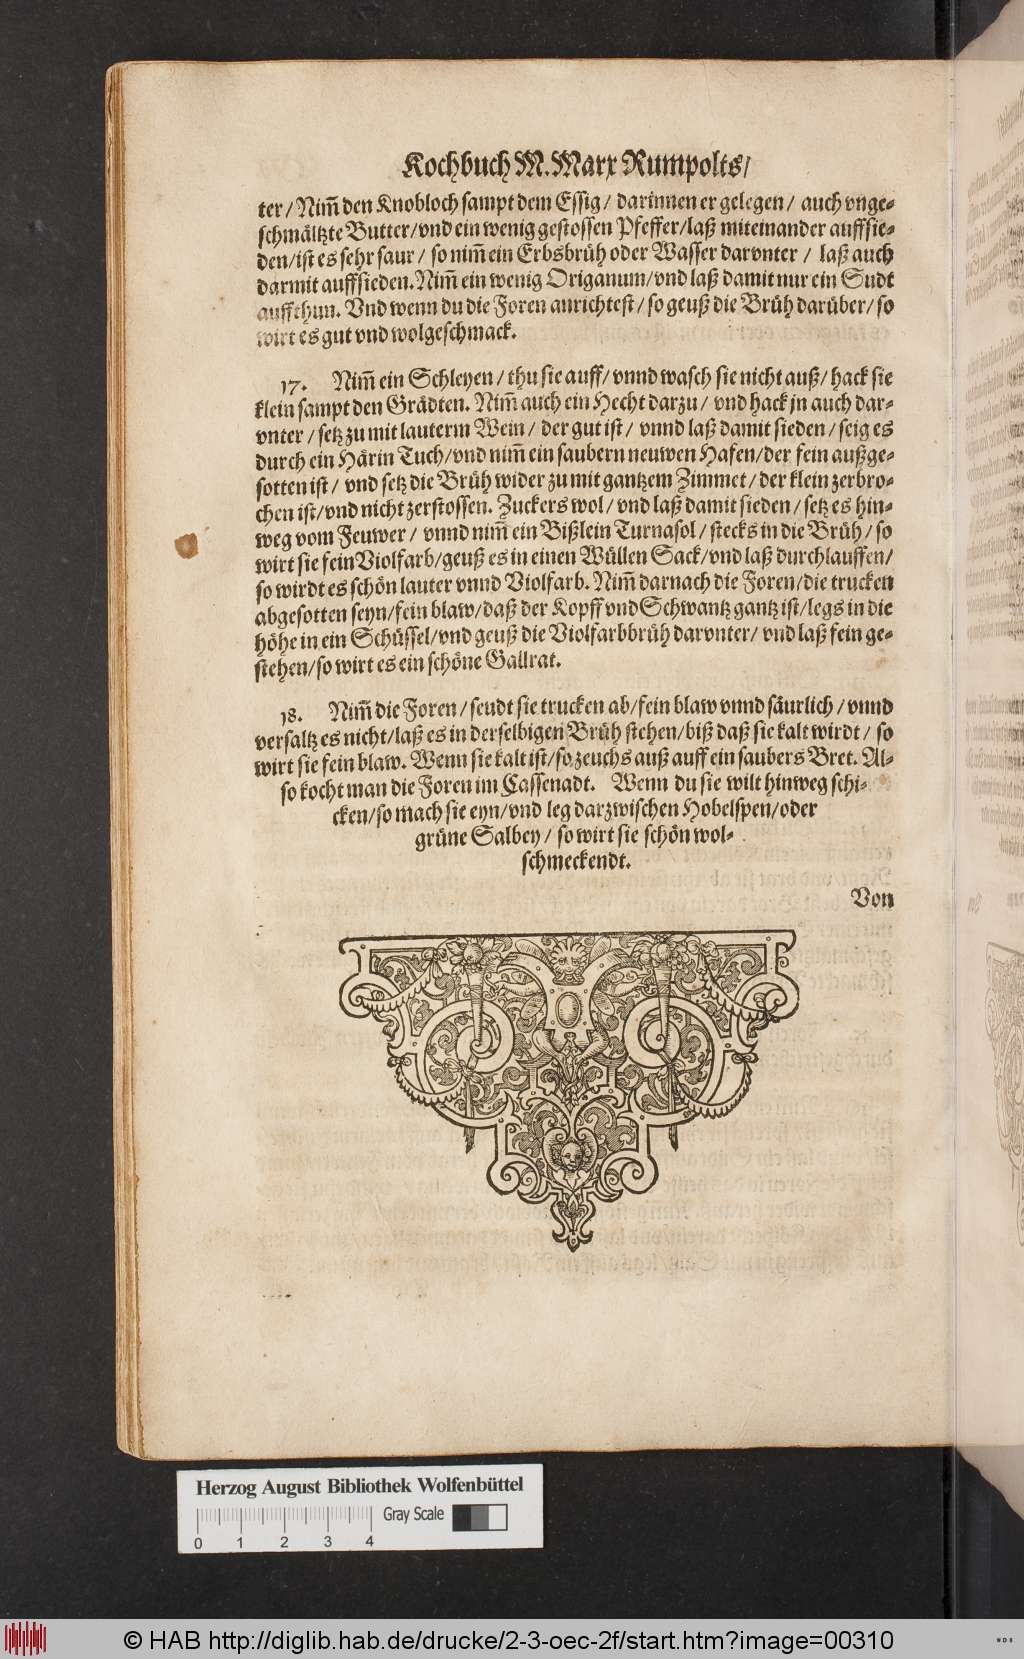 Kochbuch M. Marx Rumpolts/
ter/ Nim̃ den Knobloch sampt dem Essig/ darinnen er gelegen/ auch vnge-
schmältzte Butter/vnd ein wenig gestossen Pfeffer/laß miteinander auffsie-
den/ist es sehr saur/ so nim̃ ein Erbsbrüh oder Wasser darvnter/ laß auch
darmit auffsieden. Nim̃ ein wenig Origanum/vnd laß damit nur ein Sudt
auffthun. Vnd wenn du die Foren anrichtest/ so geuß die Brüh darüber/ so
wirt es gut vnd wolgeschmack.
17. Nim̃ ein Schleyen/ thu sie auff/ vnnd wasch sie nicht auß/ hack sie
klein sampt den Grädten. Nim̃ auch ein Hecht darzu/ vnd hack jn auch dar-
vnter/ setz zu mit lauterm Wein/ der gut ist/ vnnd laß damit sieden/ seig es
durch ein Härin Tuch/vnd nim̃ ein saubern neuwen Hafen/der fein außge-
sotten ist/ vnd setz die Brüh wider zu mit gantzem Zimmet/ der klein zerbro-
chen ist/vnd nicht zerstossen. Zuckers wol/ vnd laß damit sieden/ setz es hin-
weg vom Feuwer/ vnnd nim̃ ein Bißlein Turnasol/ stecks in die Brüh/ so
wirt sie fein Violfarb/geuß es in einen Wüllen Sack/vnd laß durchlauffen/
so wirdt es schön lauter vnnd Violfarb. Nim̃ darnach die Foren/die trucken
abgesotten seyn/fein blaw/daß der Kopff vnd Schwantz gantz ist/legs in die
höhe in ein Schüssel/vnd geuß die Violfarbbrüh darvnter/ vnd laß fein ge-
stehen/so wirt es ein schöne Gallrat.
18. Nim̃ die Foren/ seudt sie trucken ab/fein blaw vnnd säurlich/ vnnd
versaltz es nicht/laß es in derselbigen Brüh stehen/biß daß sie kalt wirdt/ so
wirt sie fein blaw. Wenn sie kalt ist/so zeuchs auß auff ein saubers Bret. Al-
so kocht man die Foren im Cassenadt. Wenn du sie wilt hinweg schi-
cken/so mach sie eyn/vnd leg darzwischen Hobelspen/oder
grüne Salbey/ so wirt sie schön wol-
schmeckendt.
Von
Herzog August Bibliothek Wolfenbüttel
Gray Scale
0 1 2 3 4
© HAB http://diglib.hab.de/drucke/2-3-oec-2f/start.htm?image=00310